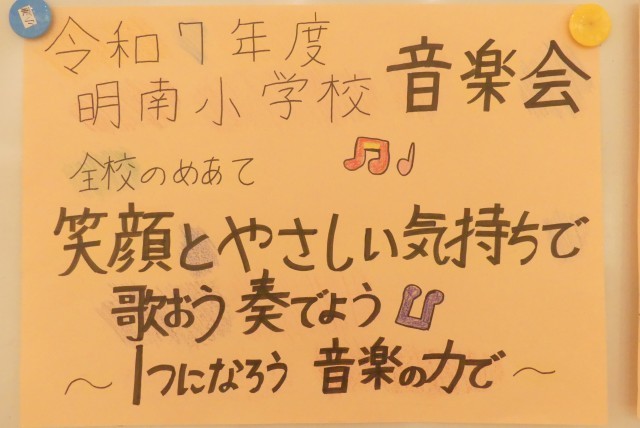 令和7年度
明南小学校 音楽会
全校のめあて
笑顔とやさしい気持ちで
歌おう奏でよう
～1つになろう 音楽の力で～